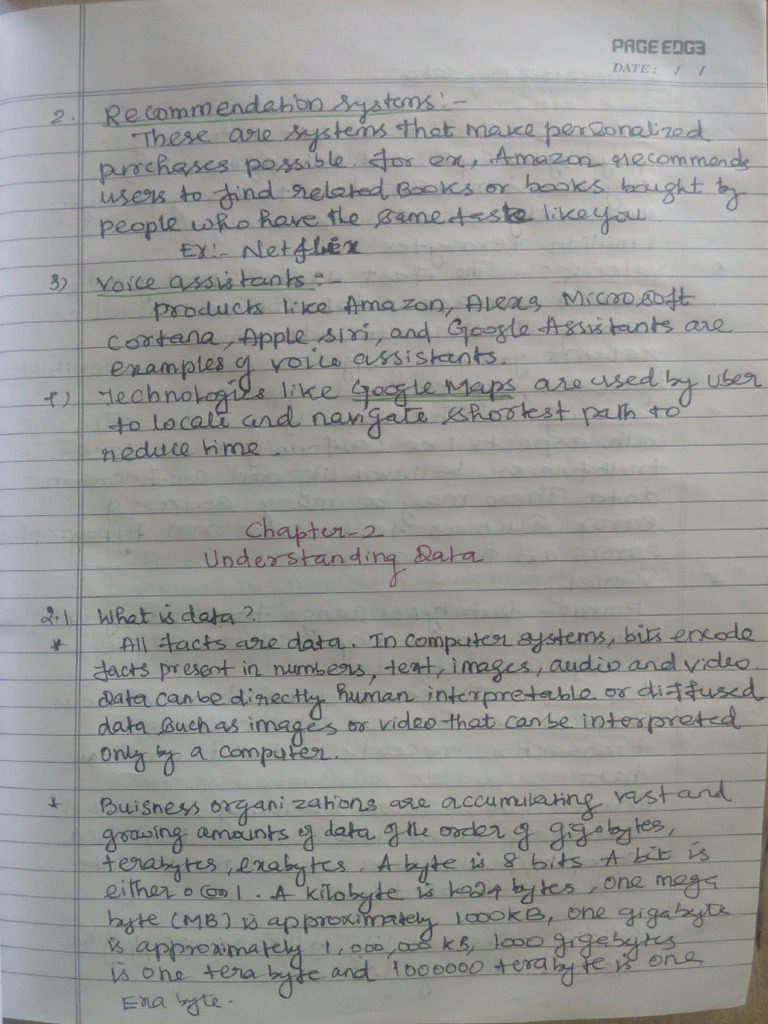 PAGE EDGE
DATE: / /
2. Recommendation systems:-
These are systems that make personalized
purchases possible. for ex, Amazon recommends
users to find related Books or books bought by
people who have the same taste like you
Ex:- Netflix
3) Voice assistants:-
products like Amazon, Alexa, Microsoft
Cortana, Apple siri, and Google Assistants are
examples of voice assistants.
4) Technologies like Google Maps are used by uber
to locate and navigate shortest path to
reduce time.
Chapter-2
Understanding Data
2.1. What is data?
* All facts are data. In computer systems, bits encode
facts present in numbers, text, images, audio and video.
Data can be directly human interpretable or diffused
data such as images or video that can be interpreted
only by a computer.
* Buisness organizations are accumulating vast and
growing amounts of data of the order of gigabytes,
terabytes, exabytes. A byte is 8 bits A bit is
either 0 or 1. A kilobyte is 1024 bytes, one mega
byte (MB) is approximately 1000KB, one gigabyte
is approximately 1,000,000 KB, 1000 gigabytes
is one tera byte and 1000000 terabyte is one
Exa byte.